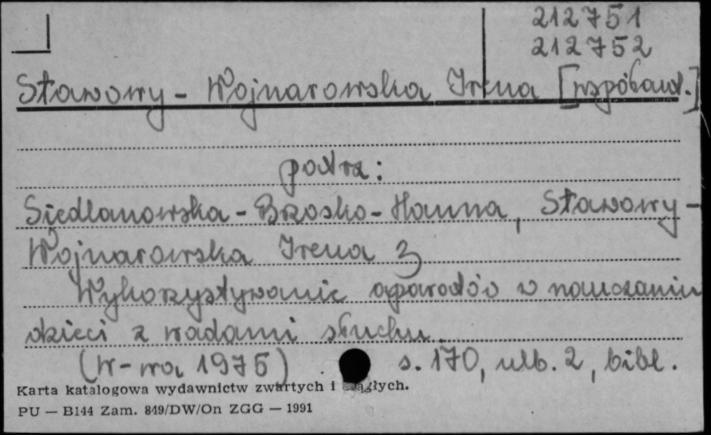 212751
212752
Stawowy - Wojnarowska Irena [współaut.]
patrz:
Siedlanowska - Brzosko - Hanna, Stawowy -
Wojnarowska Irena
Wykorzystywanie aparatów w nauczaniu
dzieci z wadami słuchu.
(W-wa 1975) s. 170, nlb. 2, bibl.
Karta katalogowa wydawnictw zwartych i ciągłych.
PU — B144 Zam. 849/DW/On ZGG — 1991